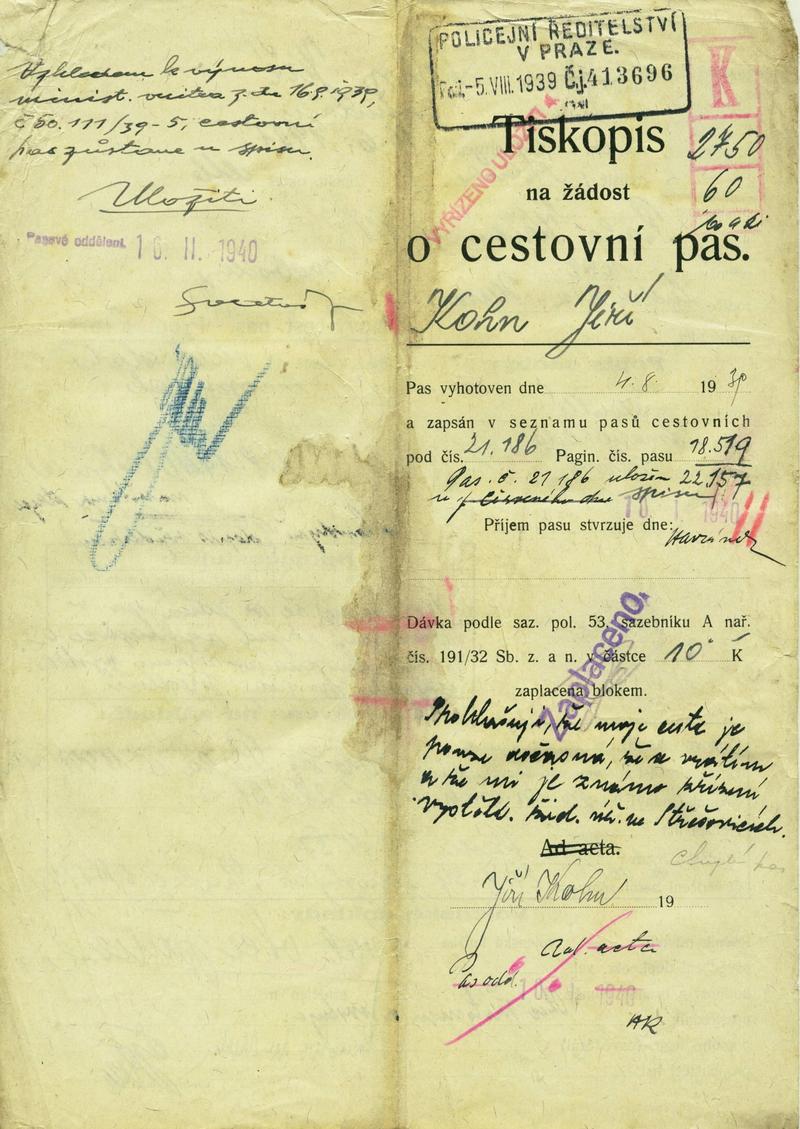 Vzhledem k výnosu
minist. vnitra z. dn 16.9.1939,
č 60.111/39-5, cestovní
pas zůstane u spisu.
Uložiti
Pasové oddělení. 16. II. 1940
POLICEJNÍ ŘEDITELSTVÍ
V PRAZE.
-5.VIII.1939 Čj. 413696
K
VYŘÍZENO ULOŽITI
Tiskopis
2750
na žádost
60
o cestovní pas.
Kohn Jiří
Pas vyhotoven dne 4. 8. 19 39
a zapsán v seznamu pasů cestovních
pod čís. 21.186 Pagin. čís. pasu 18.519
Pas. č. 21186 uložen 22.157
spisu
1940
Příjem pasu stvrzuje dne:
Havránek
Dávka podle saz. pol. 53, sazebníku A nař.
čís. 191/32 Sb. z. a n. v částce 10 K
zaplacena blokem.
Zaplaceno.
Prohlašuji, že moje cesta je
pouze dočasná, že se vrátím
a že mi je známo zřízení
vystěh. žid. úř. ve Střešovicích.
Ad acta.
Jiří Kohn 19
Ad. acta
Pas odd.
1940
AK